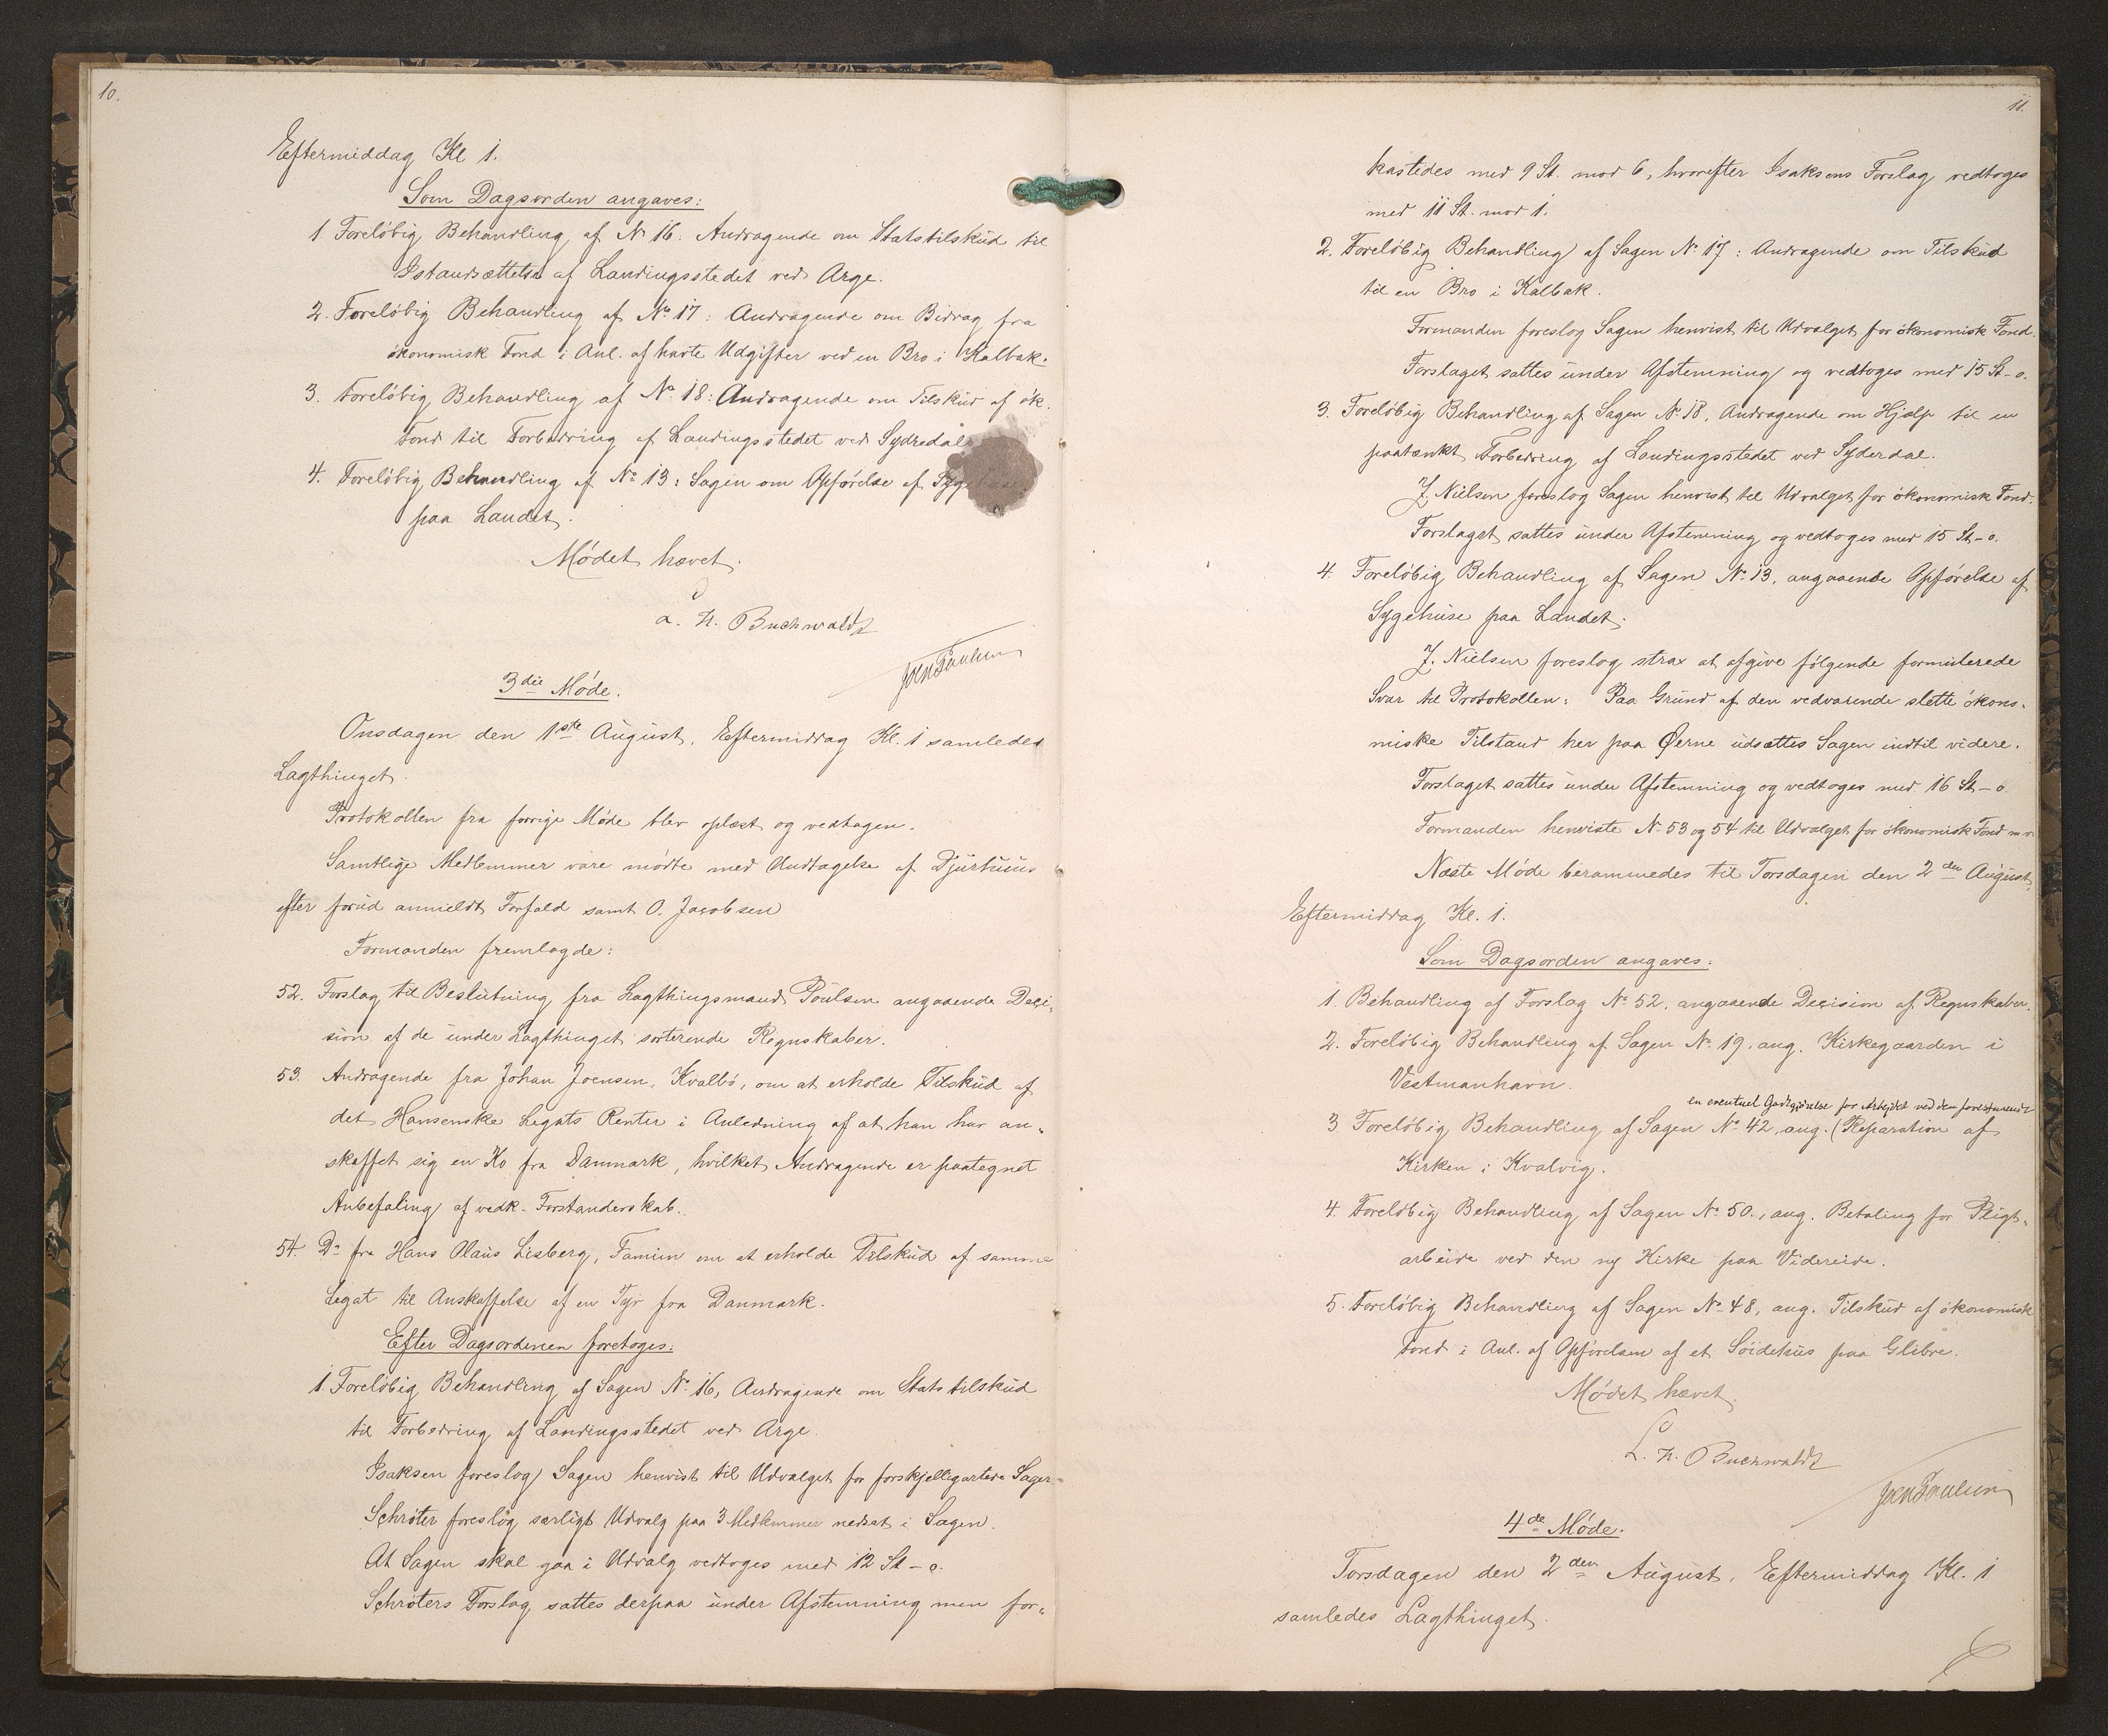 10.
Eftermiddag Kl 1.
Som Dagsorden angaves:
1 Foreløbig Behandling af No 16: Andragende om Statstilskud til
Istandsættelse af Landingsstedet ved Arge.
2. Foreløbig Behandling af No 17: Andragende om Bidrag fra
økonomisk Fond i Anl. af havte Udgifter ved en Bro i Kalbak.
3. Foreløbig Behandling af No 18: Andragende om Tilskud af øk.
Fond til Forbedring af Landingsstedet ved Sydredale
4. Foreløbig Behandling af No 13: Sagen om Opførelse af Sygehuse
paa Landet.
Mødet hævet.
C. N. Buchwaldt
Joen Poulsen
3die Møde.
Onsdagen den 1ste August, Eftermiddag Kl. 1 samledes
Lagthinget.
Protokollen fra forrige Møde blev oplæst og vedtagen.
Samtlige Medlemmer vare mødte med Undtagelse af Djurhuus
efter forud anmeldt Forfald samt O. Jacobsen
Formanden fremlagde:
52. Forslag til Beslutning fra Lagthingsmand Poulsen angaaende Deci-
sion af de under Lagthinget sorterende Regnskaber.
53. Andragende fra Johan Joensen, Kvalbø, om at erholde Tilskud af
det Hansenske Legats Renter i Anledning af at han har an-
skaffet sig en Ko fra Danmark, hvilket Andragende er paategnet
Anbefaling af vedk. Forstanderskab.
54. Do fra Hans Olaus Lisberg, Famien om at erholde Tilskud af samme
Legat til Anskaffelse af en Tyr fra Danmark.
Efter Dagsordenen foretoges:
1. Foreløbig Behandling af Sagen No 16, Andragende om Statstilskud
til Forbedring af Landingsstedet ved Arge.
Isaksen foreslog Sagen henvist til Udvalget for forskjelligartede Sager.
Schrøter foreslog særligt Udvalg paa 3 Medlemmer nedsat i Sagen.
At Sagen skal gaa i Udvalg vedtoges med 12 St - o.
Schrøters Forslag sattes derpaa under Afstemning men for-
11.
kastedes med 9 St. mod 6, hvorefter Isaksens Forslag vedtoges
med 11 St. mod 1.
2. Foreløbig Behandling af Sagen No 17: Andragende om Tilskud
til en Bro i Kalbak.
Formanden foreslog Sagen henvist til Udvalget for økonomisk Fond.
Forslaget sattes under Afstemning og vedtoges med 15 St - o.
3. Foreløbig Behandling af Sagen No 18, Andragende om Hjælp til en
paatænkt Forbedring af Landingsstedet ved Syderdal.
J. Nielsen foreslog Sagen henvist til Udvalget for økonomisk Fond.
Forslaget sattes under Afstemning og vedtoges med 15 St - o.
4. Foreløbig Behandling af Sagen No 13, angaaende Opførelse af
Sygehuse paa Landet.
J. Nielsen foreslog strax at afgive følgende formulerede
Svar til Protokollen: Paa Grund af den vedvarende slette økono-
miske Tilstand her paa Øerne udsættes Sagen indtil videre.
Forslaget sattes under Afstemning og vedtoges med 16 St - o.
Formanden henviste No 53 og 54 til Udvalget for økonomisk Fond m. v.
Næste Møde berammedes til Torsdagen den 2den August,
Eftermiddag Kl. 1.
Som Dagsorden angaves:
1. Behandling af Forslag No 52, angaaende Decision af Regnskaber.
2. Foreløbig Behandling af Sagen No 19, ang. Kirkegaarden i
Vestmanhavn.
en eventuel Godtgjørelse for Arbejdet ved den forestaaende
3. Foreløbig Behandling af Sagen No 42, ang. (Reparation af
Kirken i Kvalvig.
4. Foreløbig Behandling af Sagen No 50., ang. Betaling for Pligt-
arbeide ved den ny Kirke paa Videreide.
5. Foreløbig Behandling af Sagen No 48, ang. Tilskud af økonomisk
Fond i Anl. af Opførelsen af et Søidehus paa Glibre.
Mødet hævet.
C. N. Buchwaldt
Joen Poulsen
4de Møde.
Torsdagen den 2den August, Eftermiddag Kl. 1
samledes Lagthinget.